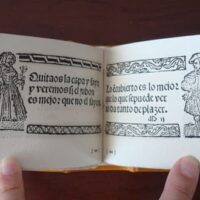 Quitaos la capa y saya
y veremos si el jubon
es mejor que no el sayon.
Lo cubierto es lo mejor
que lo que se puede ver
no da tanto de plazer.